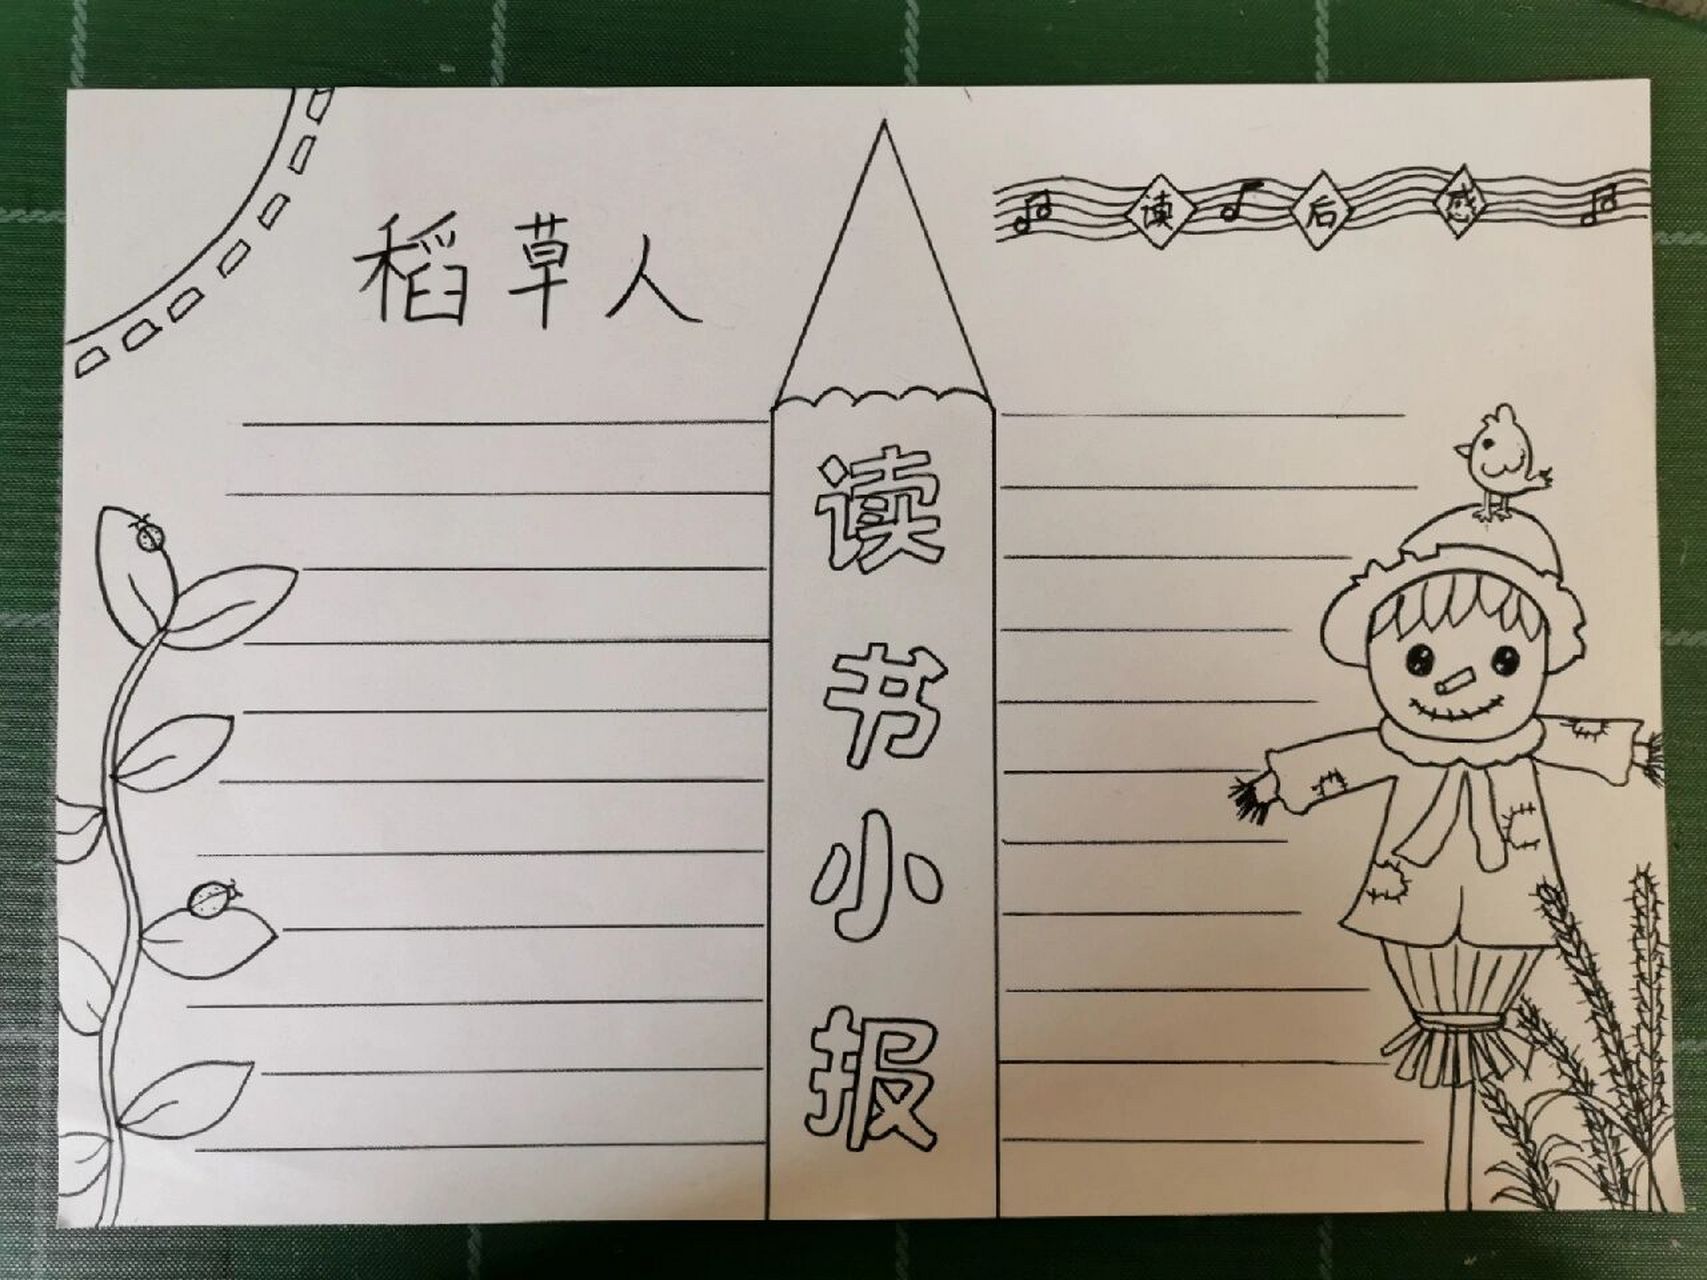 稻草人
读书小报
读后感